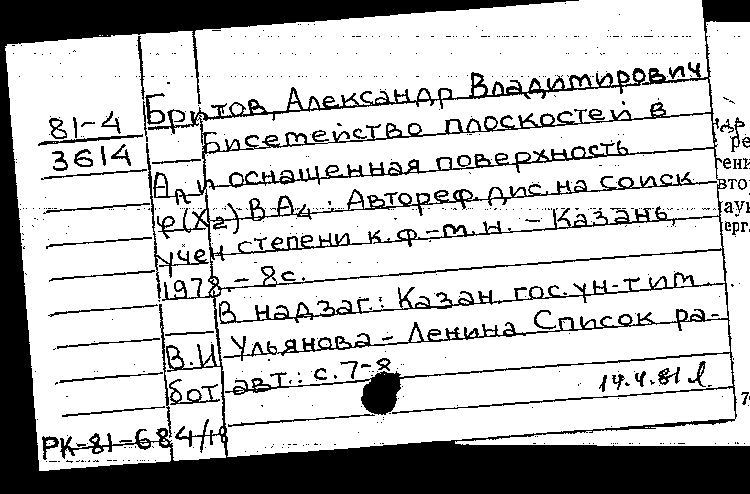 81-4
3614
Бритов, Александр Владимирович
Бисемейство плоскостей в
Aₙ и оснащенная поверхность
φ(X₂) в A₄ : Автореф. дис. на соиск
учен степени к.ф.-м.н. - Казань,
1978. - 8 с.
В надзаг.: Казан гос. ун-т им
В.И Ульянова - Ленина Список ра-
бот авт.: с. 7-8
14.4.81
РК-81-684/18